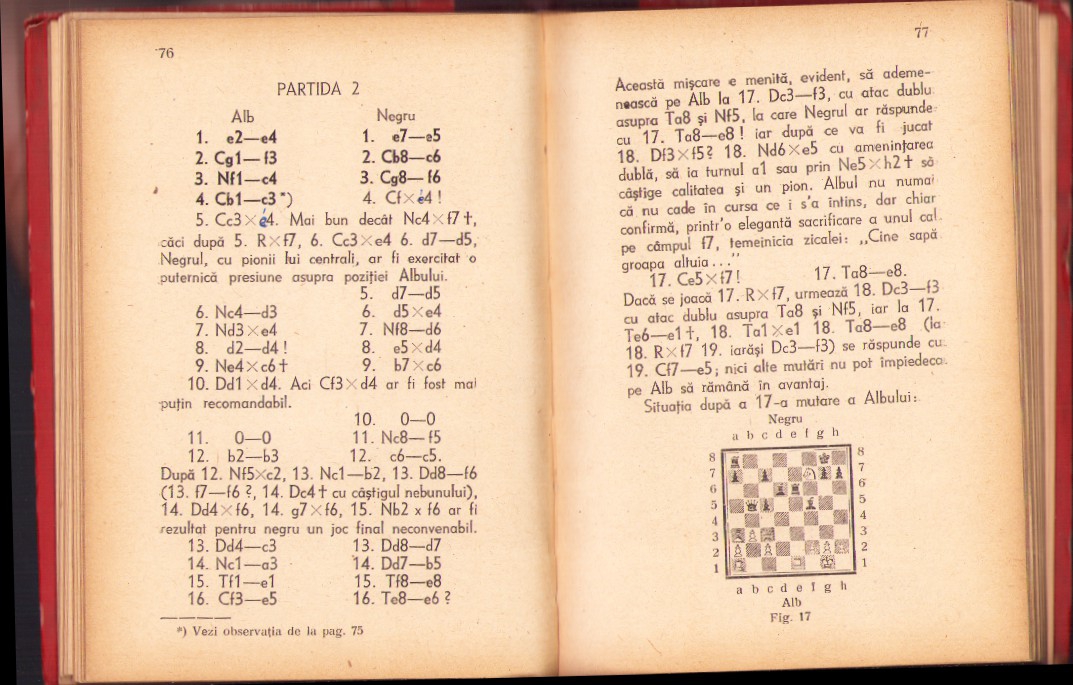 76
PARTIDA 2
Alb Negru
1. e2—e4 1. e7—e5
2. Cg1—f3 2. Cb8—c6
3. Nf1—c4 3. Cg8—f6
4. Cb1—c3 *) 4. Cf×e4 !
5. Cc3×e4. Mai bun decât Nc4×f7†,
căci după 5. R×f7, 6. Cc3×e4 6. d7—d5,
Negrul, cu pionii lui centrali, ar fi exercitat o
puternică presiune asupra poziției Albului.
5. d7—d5
6. Nc4—d3 6. d5×e4
7. Nd3×e4 7. Nf8—d6
8. d2—d4 ! 8. e5×d4
9. Ne4×c6† 9. b7×c6
10. Dd1×d4. Aci Cf3×d4 ar fi fost mai
puțin recomandabil.
10. 0—0
11. 0—0 11. Nc8—f5
12. b2—b3 12. c6—c5.
După 12. Nf5×c2, 13. Nc1—b2, 13. Dd8—f6
(13. f7—f6 ?, 14. Dc4† cu câștigul nebunului),
14. Dd4×f6, 14. g7×f6, 15. Nb2 x f6 ar fi
rezultat pentru negru un joc final neconvenabil.
13. Dd4—c3 13. Dd8—d7
14. Nc1—a3 14. Dd7—b5
15. Tf1—e1 15. Tf8—e8
16. Cf3—e5 16. Te8—e6 ?
*) Vezi observația de la pag. 75
77
Această mișcare e menită, evident, să ademe-
nească pe Alb la 17. Dc3—f3, cu atac dublu
asupra Ta8 și Nf5, la care Negrul ar răspunde
cu 17. Ta8—e8 ! iar după ce va fi jucat
18. Df3×f5? 18. Nd6×e5 cu amenințarea
dublă, să ia turnul a1 sau prin Ne5×h2† să
câștige calitatea și un pion. Albul nu numai
că nu cade în cursa ce i s'a întins, dar chiar
confirmă, printr'o elegantă sacrificare a unul cal
pe câmpul f7, temeinicia zicalei: „Cine sapă
groapa altuia . . .”
17. Ce5×f7 ! 17. Ta8—e8.
Dacă se joacă 17. R×f7, urmează 18. Dc3—f3
cu atac dublu asupra Ta8 și Nf5, iar la 17.
Te6—e1†, 18. Ta1×e1 18. Ta8—e8 (la
18. R×f7 19. iarăși Dc3—f3) se răspunde cu
19. Cf7—e5 ; nici alte mutări nu pot împiedeca
pe Alb să rămână în avantaj.
Situația după a 17-a mutare a Albului:
Negru
a b c d e f g h
8 8
7 7
6 6
5 5
4 4
3 3
2 2
1 1
a b c d e f g h
Alb
Fig. 17